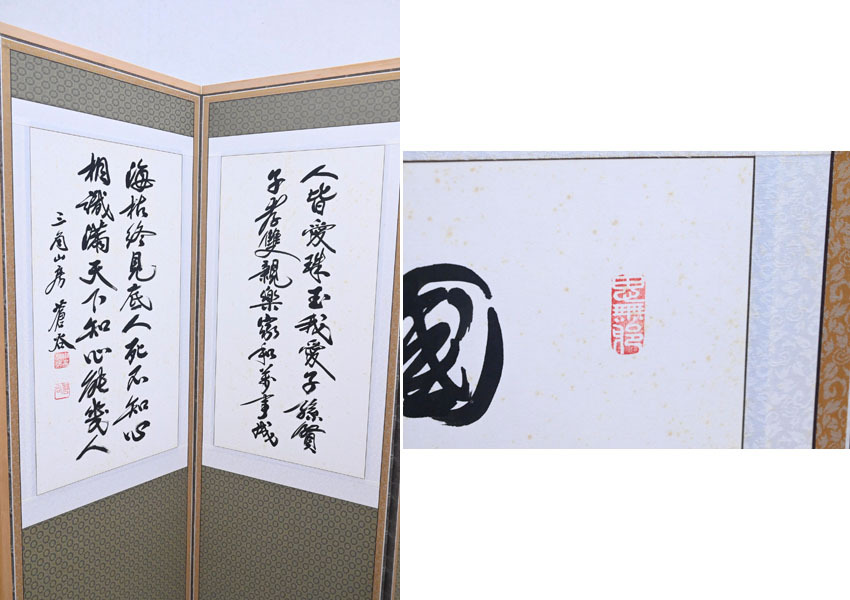 人皆愛珠玉我愛子孫賢
子孝雙親樂家和萬事成
海枯終見底人死不知心
相識滿天下知心能幾人
三角山房 蒼谷
國
思無邪